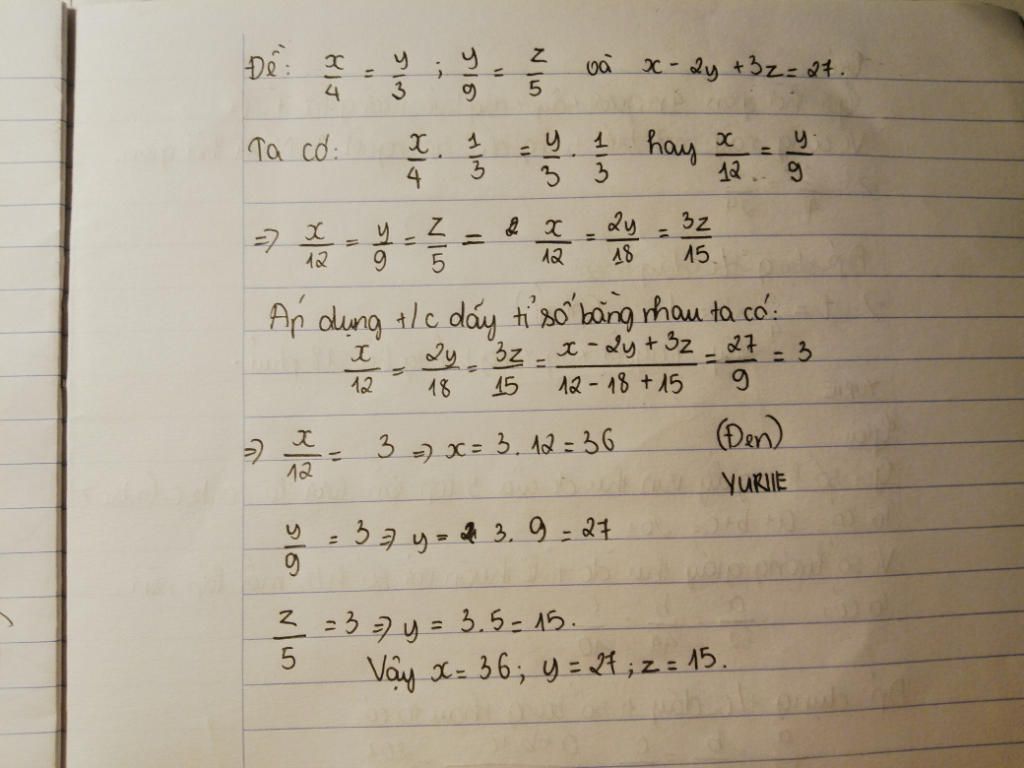 Đề: x/4 = y/3 ; y/9 = z/5 và x - 2y + 3z = 27.
Ta có: x/4 . 1/3 = y/3 . 1/3 hay x/12 = y/9
=> x/12 = y/9 = z/5 = x/12 = 2y/18 = 3z/15
Áp dụng t/c dãy tỉ số bằng nhau ta có:
x/12 = 2y/18 = 3z/15 = (x - 2y + 3z)/(12 - 18 + 15) = 27/9 = 3
=> x/12 = 3 => x = 3. 12 = 36 (Đen)
YURIIE
y/9 = 3 => y = 3. 9 = 27
z/5 = 3 => y = 3.5 = 15.
Vậy x = 36; y = 27; z = 15.